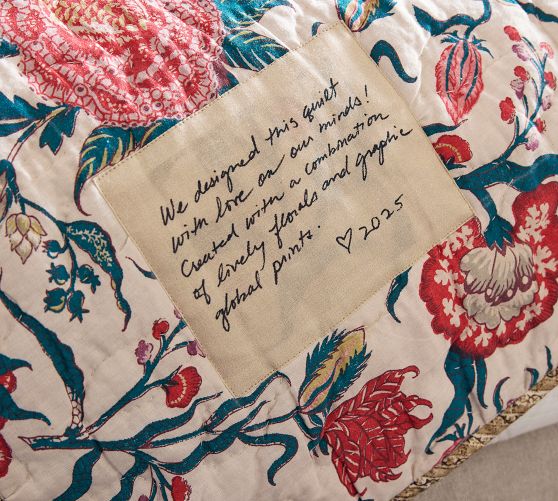 We designed this quilt
with love on our minds!
Created with a combination
of lively florals and graphic
global prints.
♡ 2025